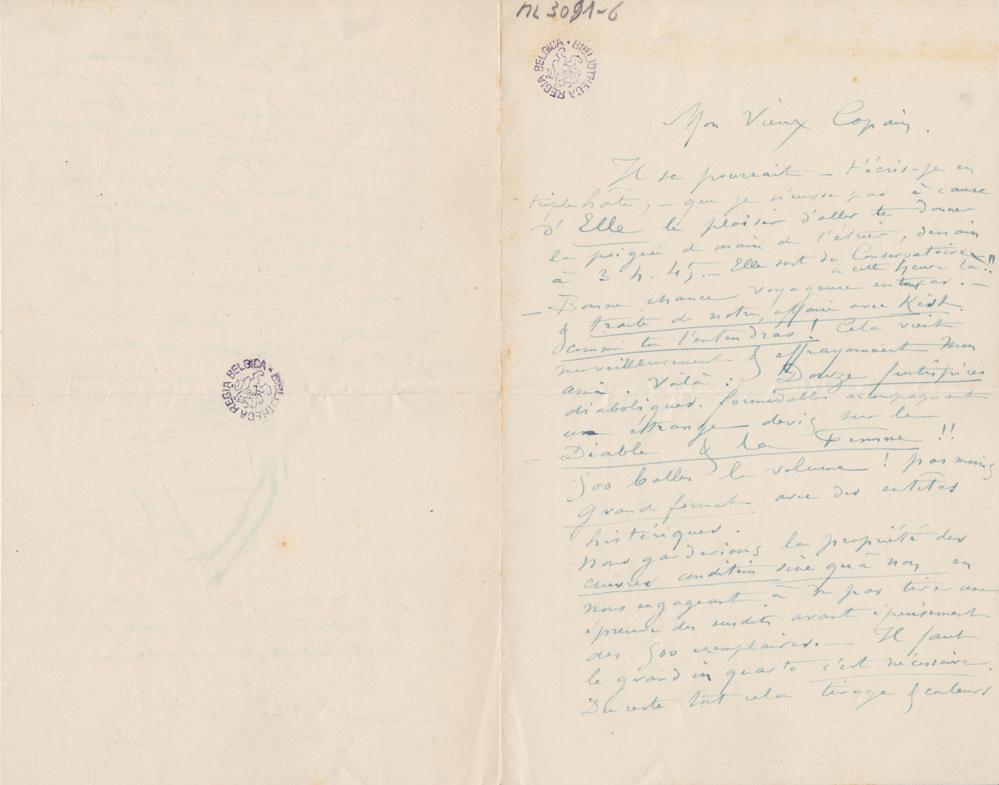 ML 3091-6
BIBLIOTHECA REGIA BELGICA
BIBLIOTHECA REGIA BELGICA
Mon Vieux Copain.
Il se pourrait – t'écris-je en
triple hâte, – que je n'eusse pas à cause
d'Elle le plaisir d'aller te donner
la poignée de main de l'étrier, demain
à 3 h. 45. – Elle sort du Conservatoire
à cette heure là!!
– Bonne chance voyageuse –
& traite de notre affaire avec Kist.
comme tu l'entendras! Cela vient
merveilleusement & effrayamment mon
ami. Voilà: Douze frontispices
diaboliques. formidables accompagnent
un étrange devis sur le
Diable & la Femme!!
500 balles le volume! pas moins
Grand format avec des entêtes
histériques.
Nous garderions la propriété des
cuivres condition sine quâ non en
nous engageant à ne pas tirer une
épreuve des susdits avant épuisement
des 500 exemplaires. – Il faut
le grand in quarto c'est nécessaire.
Du reste tout cela tirage &